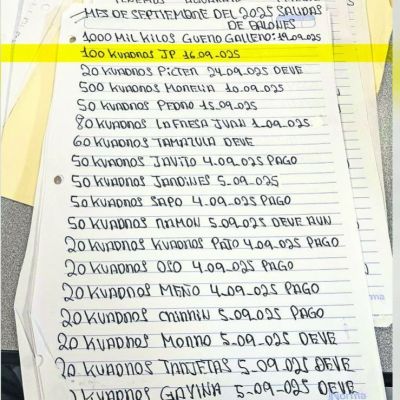 MES DE SEPTIEMBRE DEL 2025 SALIDAS
DE BALONES
1000 MIL KILOS GUERO GALLERO: 19.09.025
100 KUADROS JP 16.09.025
20 KUADROS PICTER 24.09.025 DEVE
500 KUADROS MORELIA 10.09.025
50 KUADROS PEDRO 15.09.025
80 KUADROS LA FRESA JUAN 1.09.025
60 KUADROS TAMAZULA DEVE
50 KUADROS JAVITO 4.09.025 PAGO
50 KUADROS JARDINES 5-09.025
50 KUADROS SAPO 4.09.025 PAGO
50 KUADROS RAMON 5.09.025 DEVE AUN
20 KUADROS KUADROS PATO 4.09.025 PAGO
20 KUADROS OSO 4.09.025 PAGO
20 KUADROS MEÑO 4.09.025 PAGO
20 KUADROS 5-09.025 DEVE
20 KUADROS MORRO 5-09.025 DEVE
20 KUADROS TARJETAS 5-09.025 DEVE
KUADROS GAVINA 5-09.025 DEVE
Norma